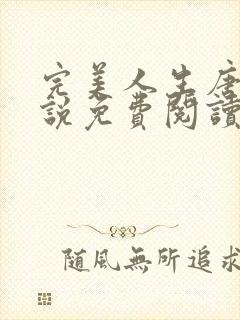 完美人生唐
說免費閱讀
隨風無所追求